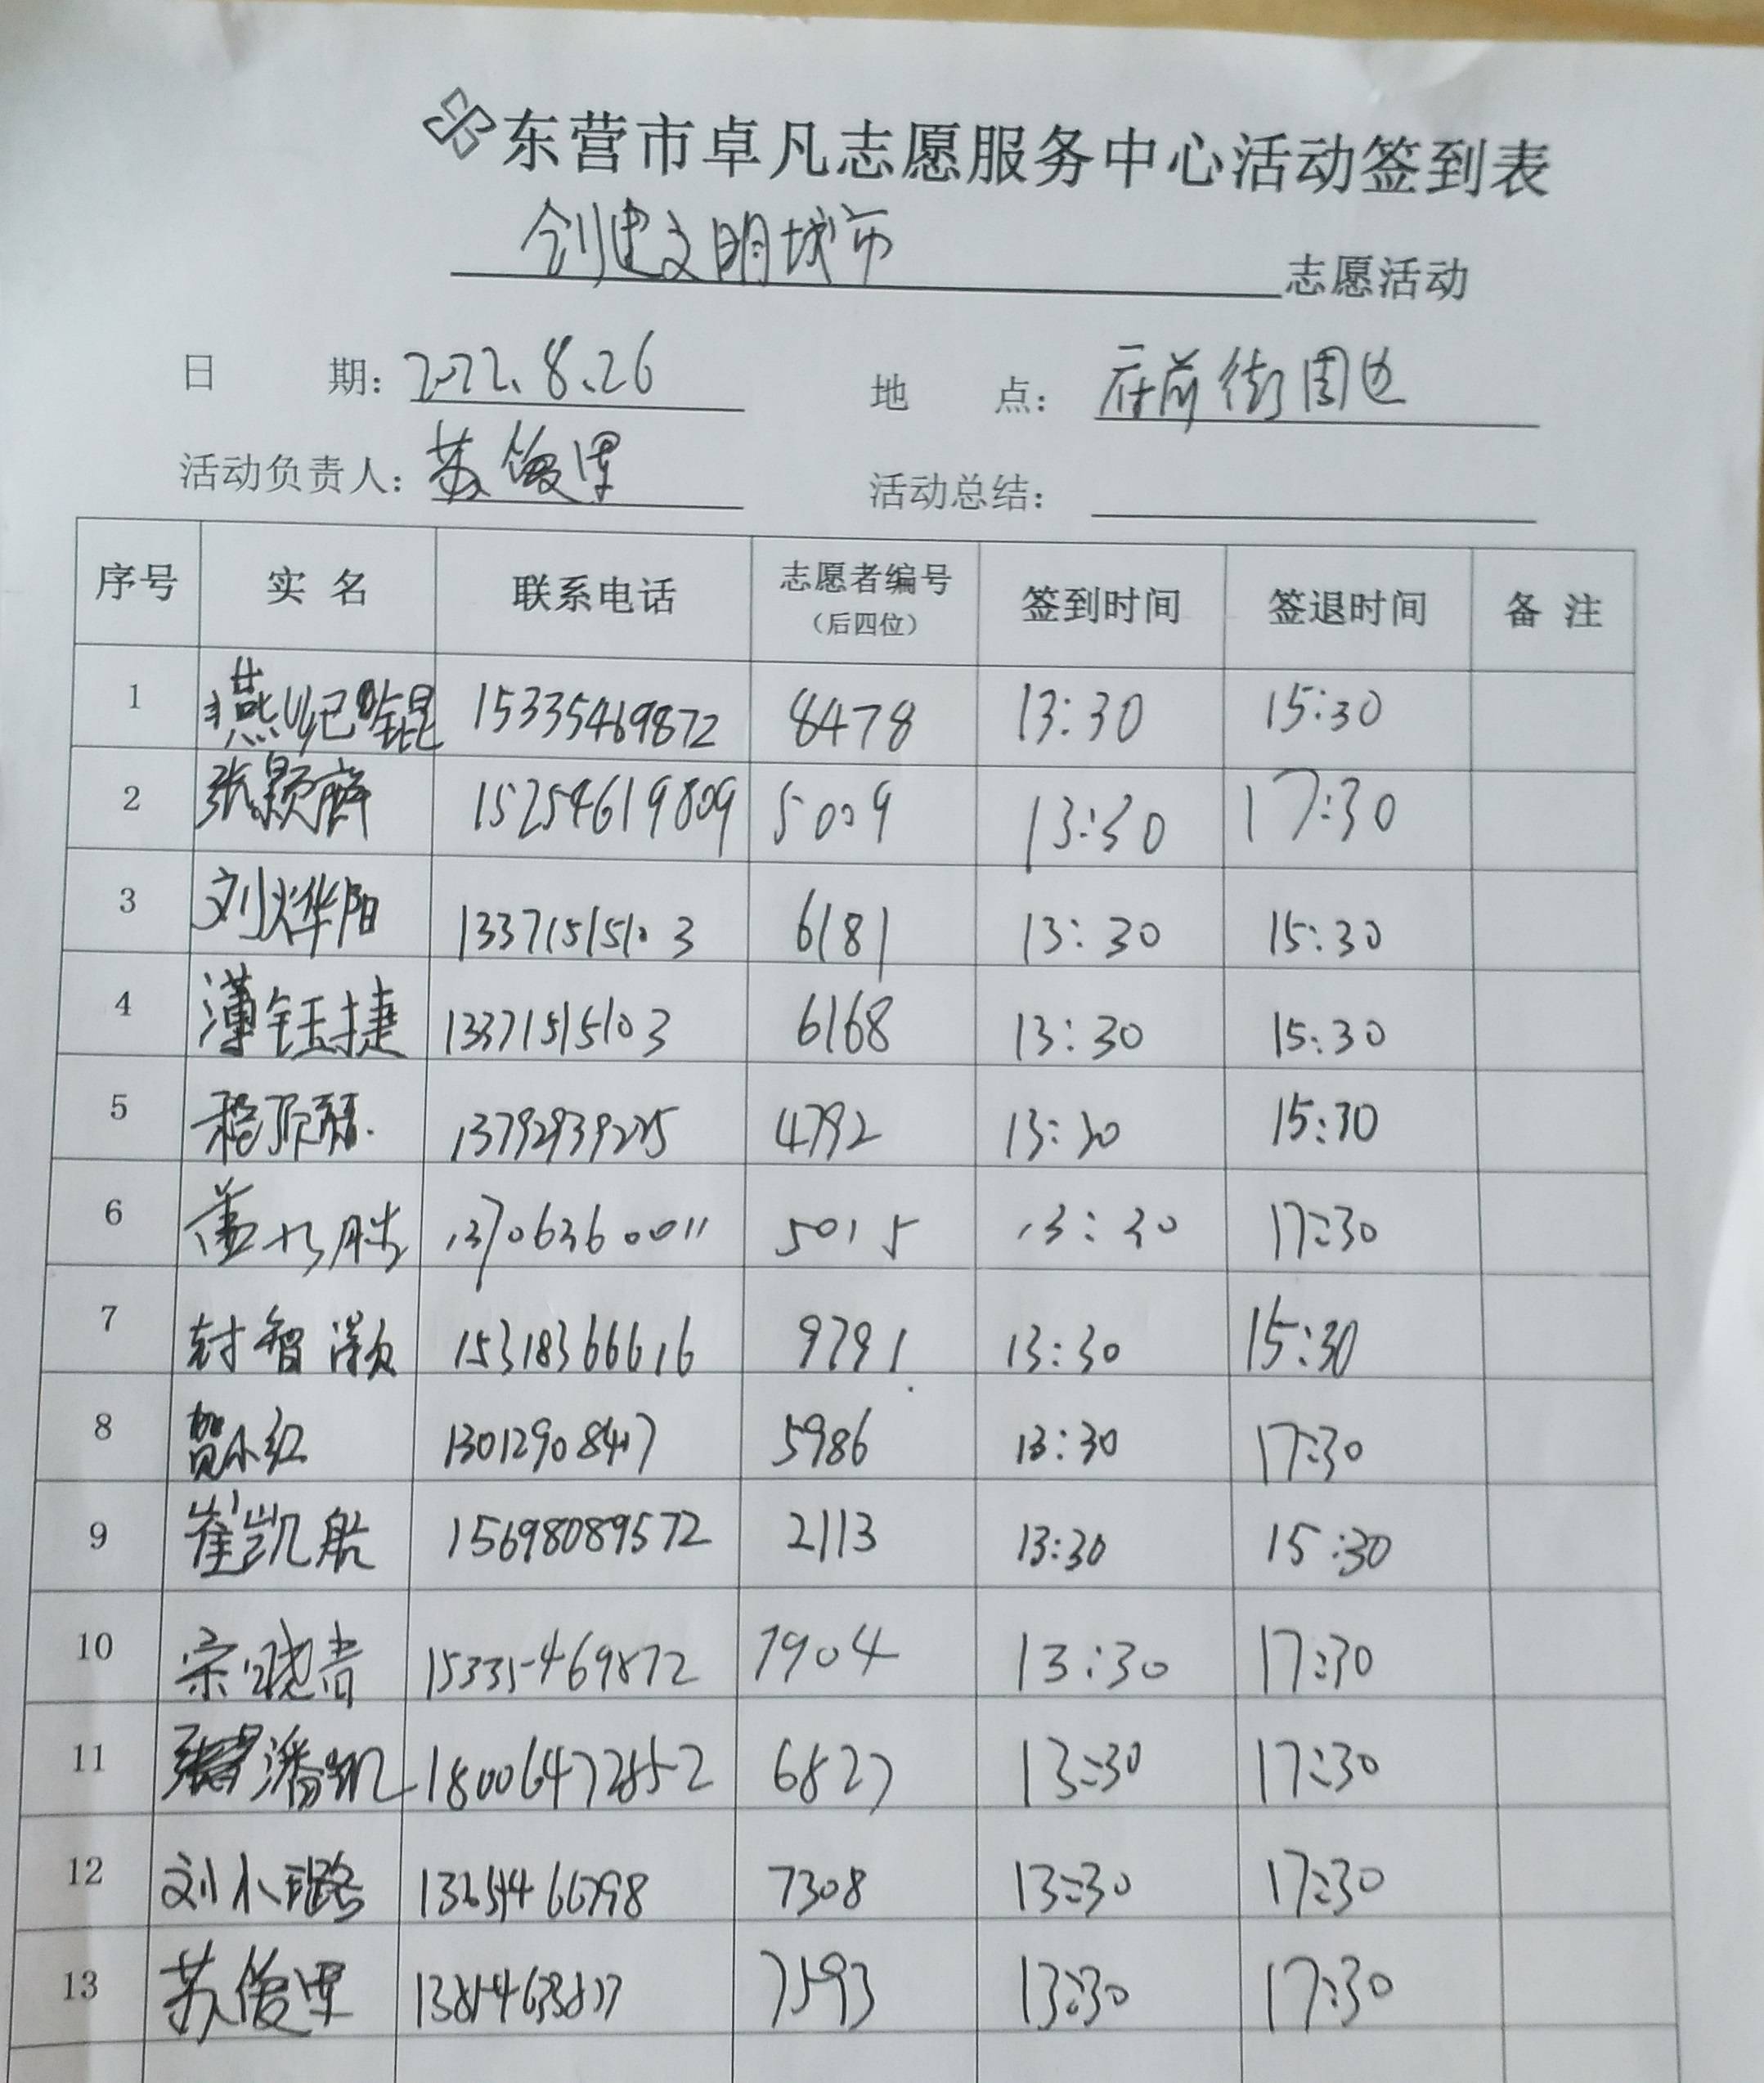 东营市卓凡志愿服务中心活动签到表
创建文明城市 志愿活动
日 期: 2022.8.26 地 点: 府前街周边
活动负责人: 苏俊军 活动总结:
序号 实 名 联系电话 志愿者编号 (后四位) 签到时间 签退时间 备 注
1 15335469872 8478 13:30 15:30
2 张颢 15254619809 5009 13:30 17:30
3 刘烨阳 13371515103 6181 13:30 15:30
4 薄钰捷 13371515103 6168 13:30 15:30
5 4792 13:30 15:30
6 13706360011 5015 13:30 17:30
7 封智灏 15318366616 9791 13:30 15:30
8 贺小红 13012908417 5986 13:30 17:30
9 崔凯航 15698089572 2113 13:30 15:30
10 宗晓青 15335469872 7904 13:30 17:30
11 潘凯 18006472852 6827 13:30 17:30
12 刘小璐 7308 13:30 17:30
13 苏俊军 7593 13:30 17:30